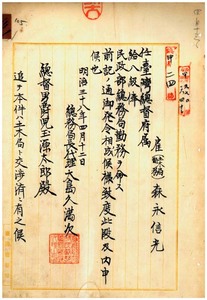 雇 森永信光
任臺灣總督府属
給八級俸
民政部總務局勤務ヲ命ス
前記ノ通御発令相成候様致度此段及内申
候也
明治三十八年四月十二日
總務局長代理大島久満次
總督男爵兒玉源太郎殿
追テ本件ハ土木局ト交渉濟ニ有之候